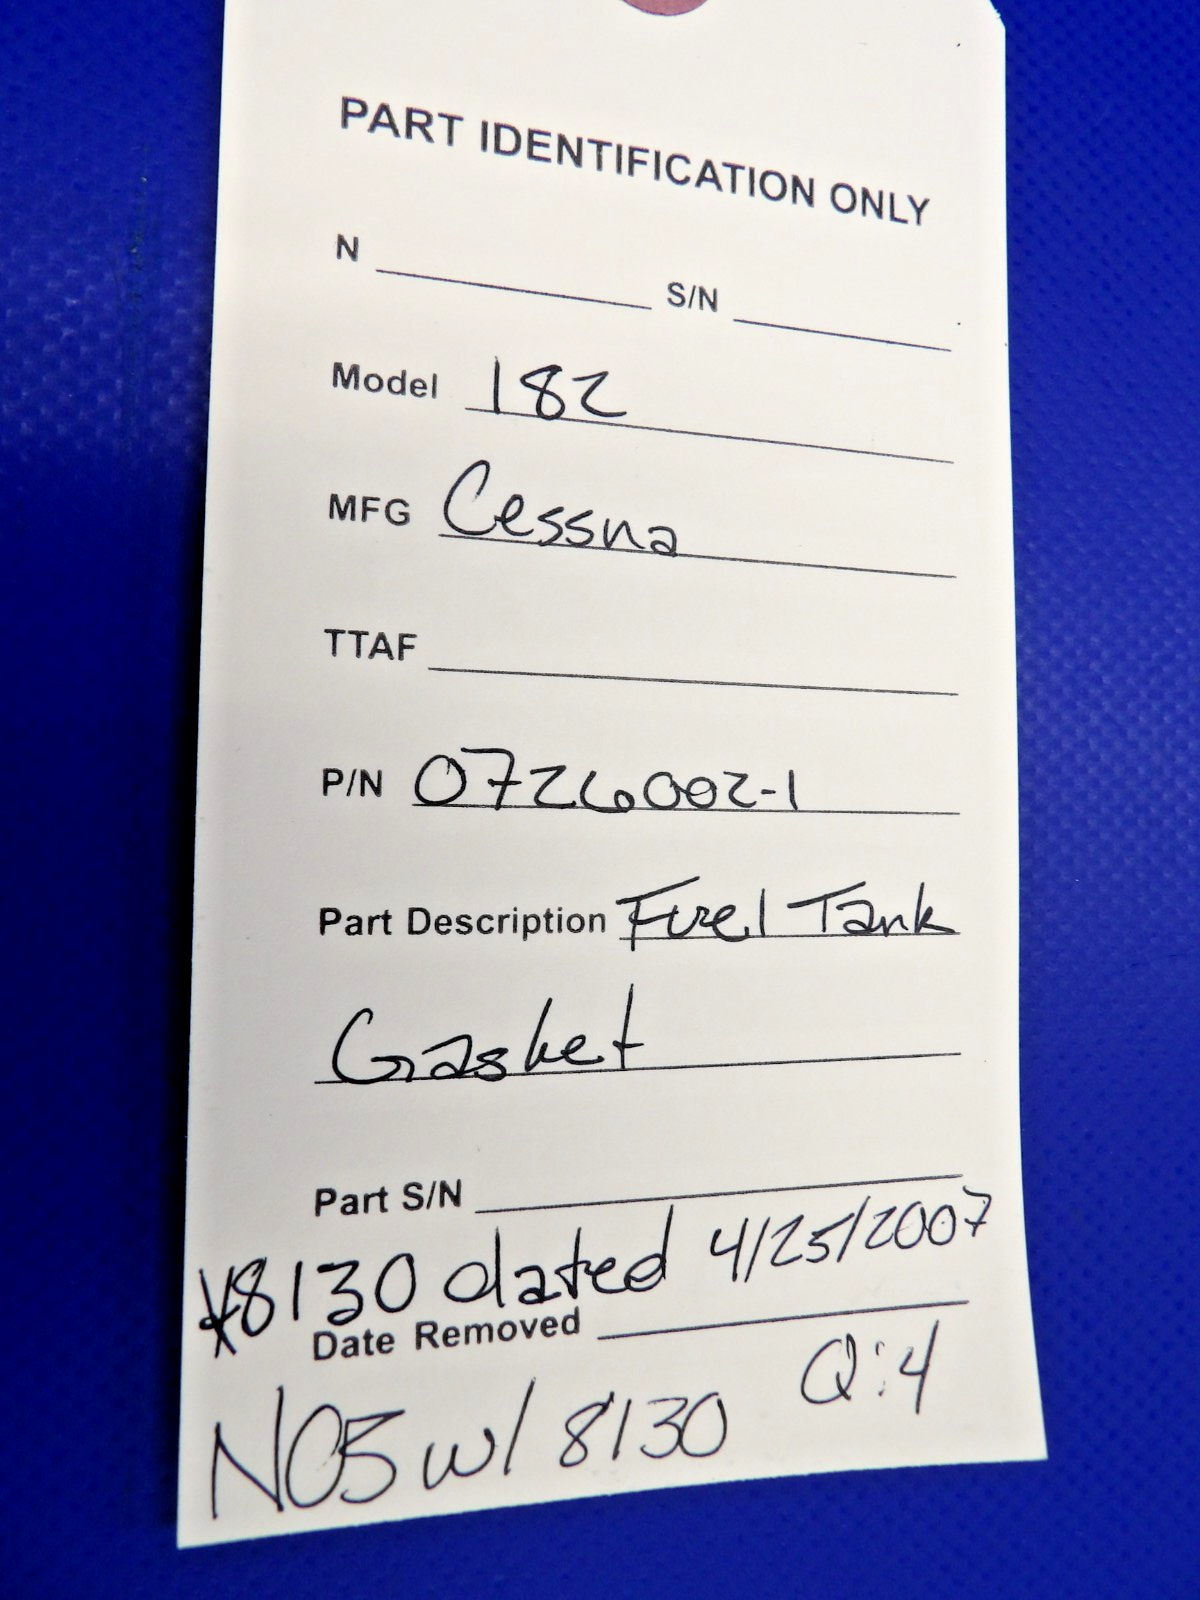 PART IDENTIFICATION ONLY
N ________ S/N ________
Model 182
MFG Cessna
TTAF ________
P/N 0726002-1
Part Description Fuel Tank
Gasket
Part S/N ________
*8130 dated 4/25/2007
Date Removed ________
Q:4
NOS w/ 8130